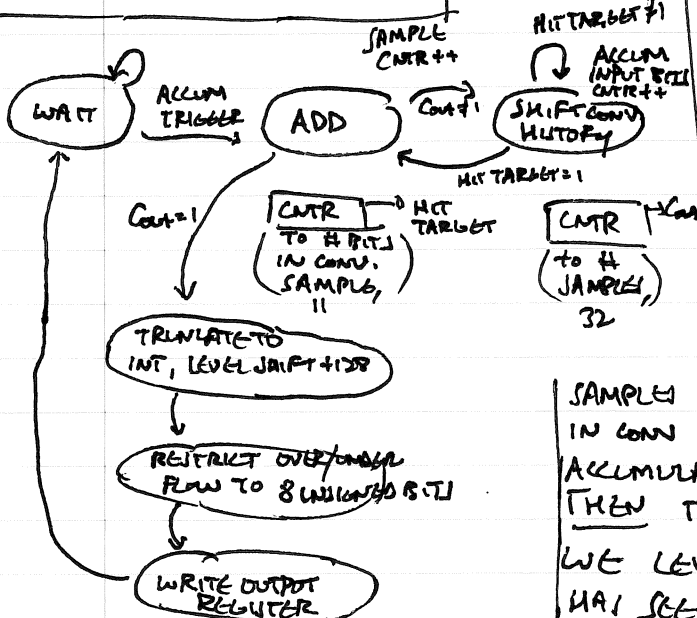 SAMPLE
CNTR ++
HIT TARGET ≠ 1
WAIT
ACCUM
TRIGGER
ADD
Cout ≠ 1
ACCUM
INPUT BITS
CNTR ++
SHIFT CONV
HISTORY
HIT TARGET = 1
Cout = 1
CNTR
HIT
TARGET
TO # BITS
IN CONV.
SAMPLE,
11
CNTR
Cout
to #
SAMPLES,
32
TRUNCATE TO
INT, LEVEL SHIFT +128
RESTRICT OVER/UNDER
FLOW TO 8 UNSIGNED BITS
WRITE OUTPUT
REGISTER
SAMPLES
IN CONV
ACCUMULA
THEN T
WE LEV
HAS SEE